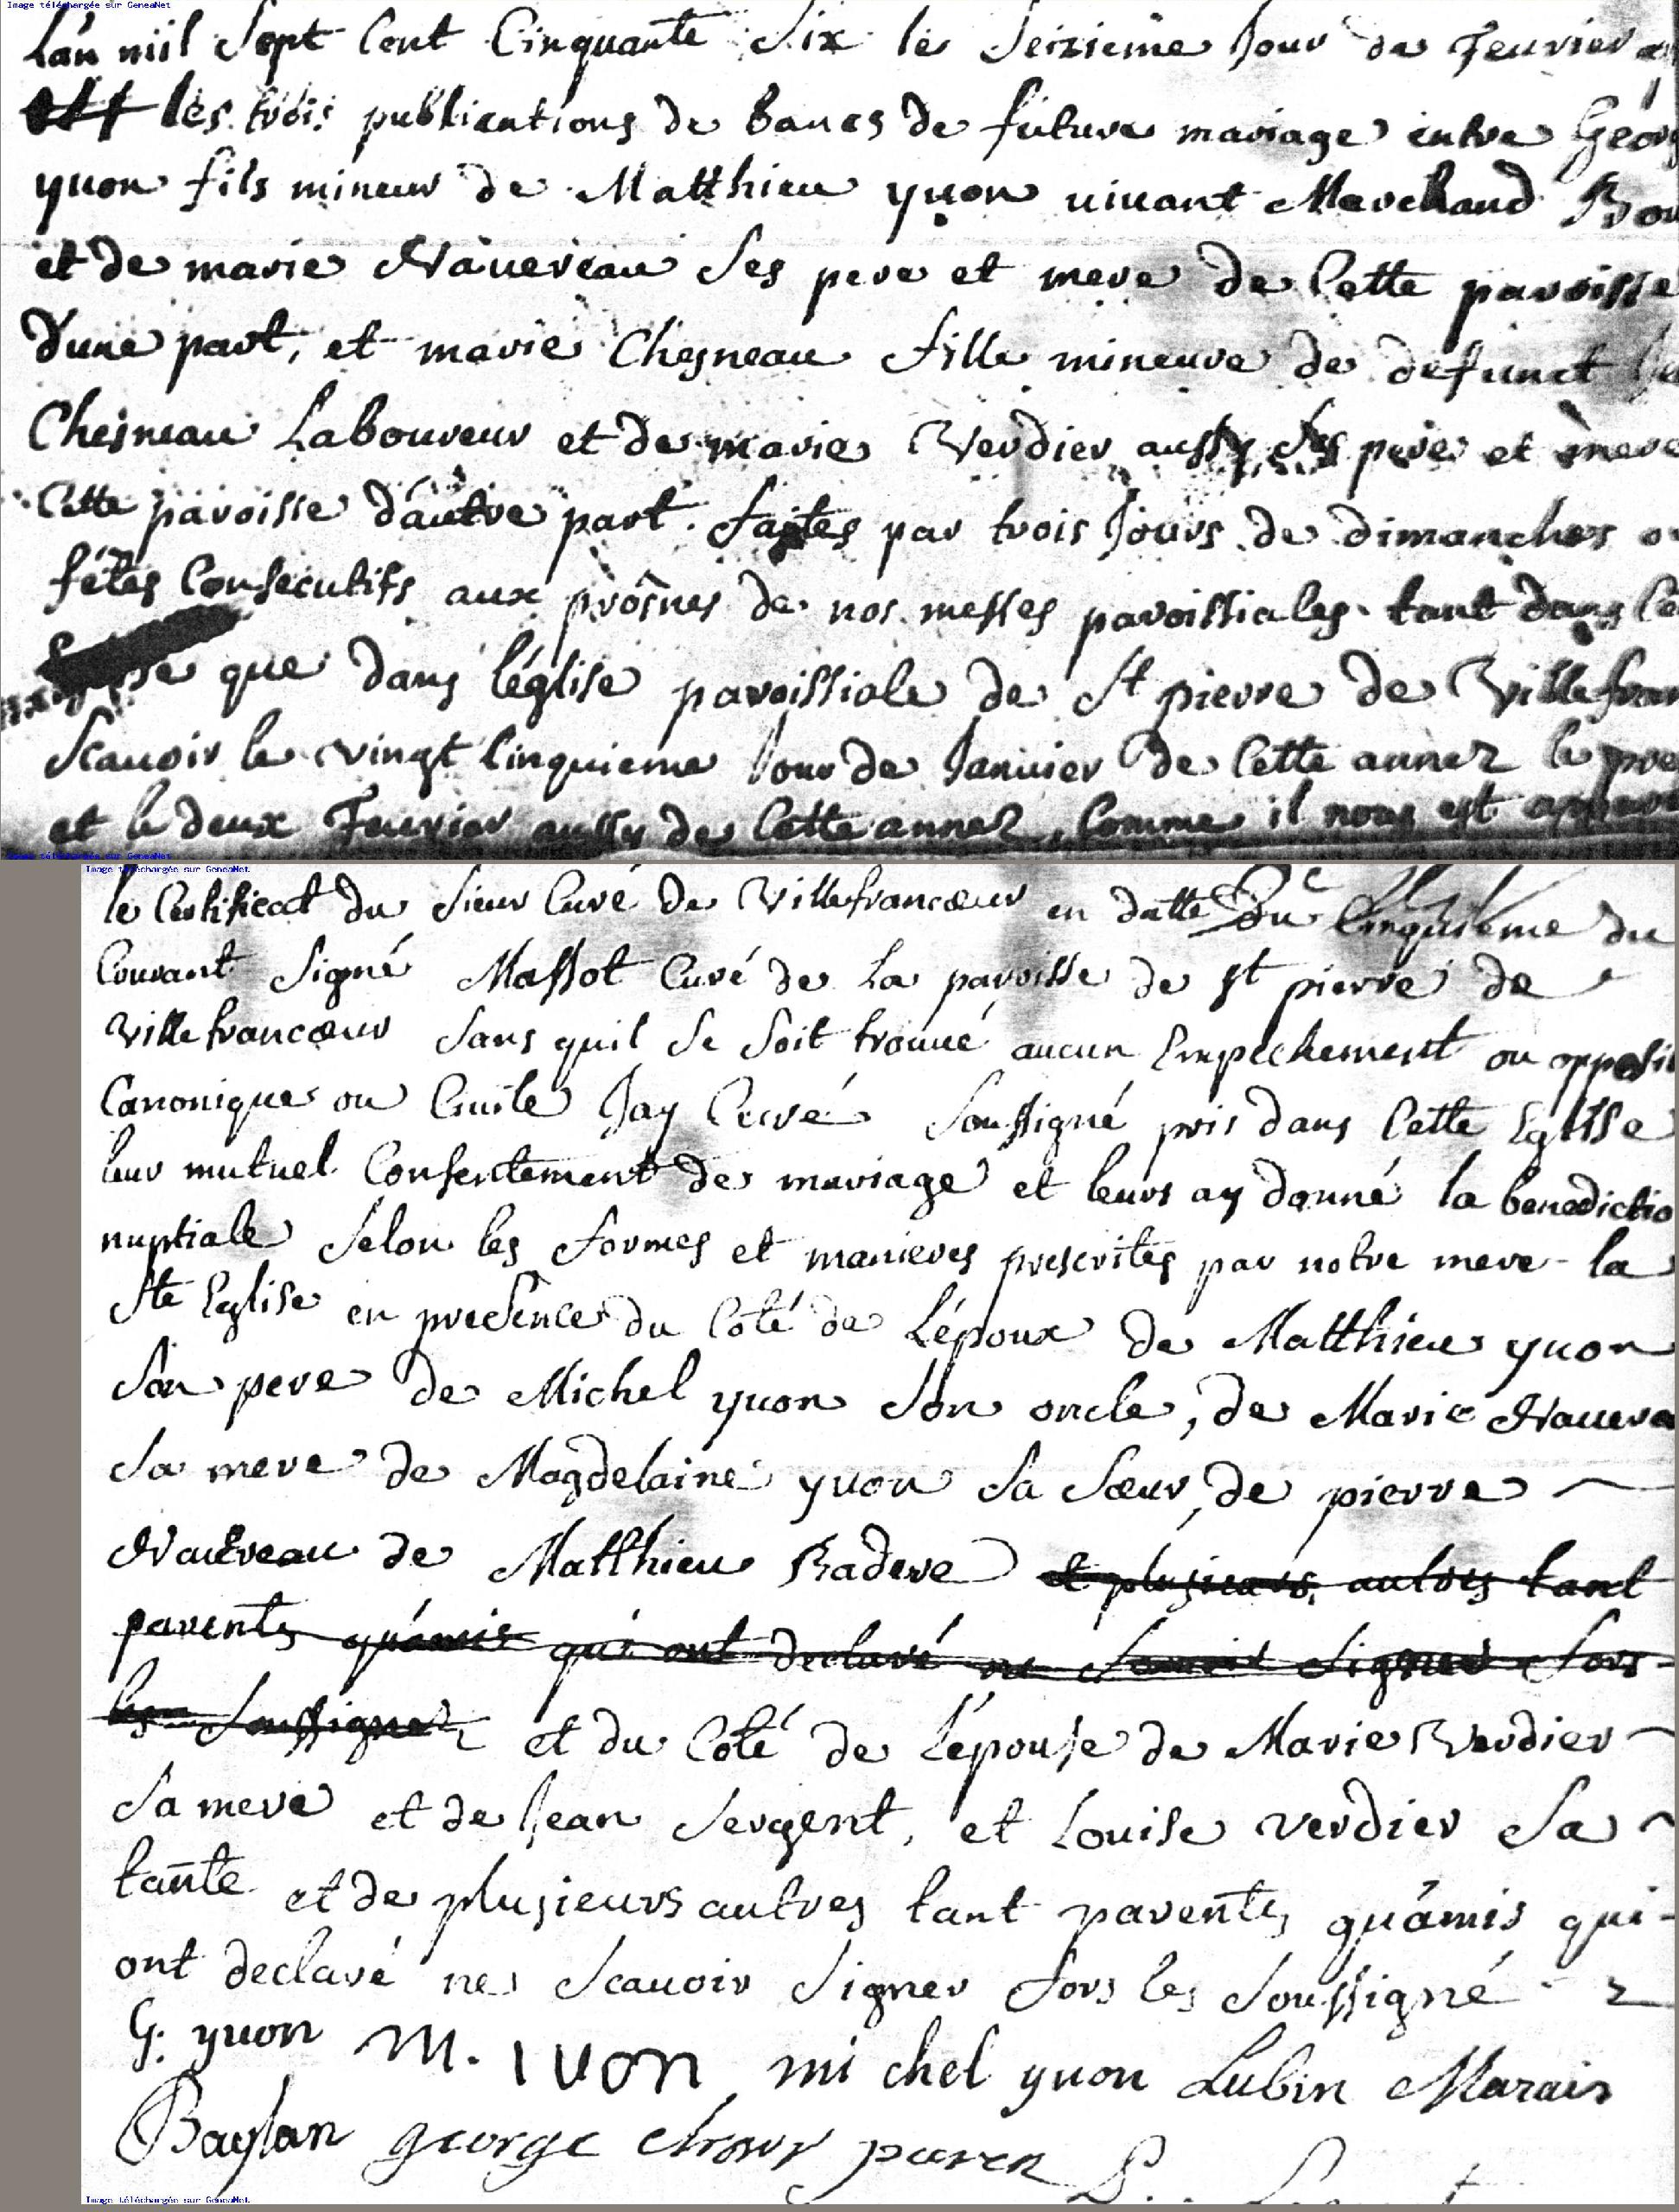 Image téléchargée sur GeneaNet
L'an mil Sept Cent Cinquante Six le Seizieme Jour de Feuvrier
les trois publications de bancs de future mariage entre Geor
yuon fils mineur de Matthieu yuon uiuant Marchand Bou
et de marie Nauereau Ses pere et mere de Cette paroisse
d'une part, et marie Chesneau fille mineure de defunct
Chesneau Laboureur et de marie Verdier aussy Ses pere et mere
Cette paroisse d'autre part. faites par trois Jours de dimanches o
fêtes Consecutifs aux prosnes de nos messes paroissiales tant dans Ce
que dans l'église paroissiale de St pierre de Villefran
Scauoir le vingt Cinquieme Jour de Januier de Cette année le pre
et le deux Feuvrier aussy de Cette année, Comme il nous est
Image téléchargée sur GeneaNet
Image téléchargée sur GeneaNet
le Certificat du Sieur Curé de Villefrancœur en datte Du Cinquieme du
Courant Signé Massot Curé de La paroisse de St pierre de
Villefrancœur Sans quil Se Soit trouué aucun Empechement ou opposi
Canonique ou Ciuile Jay Curé Soussigné pris dans Cette Eglise
leur mutuel Consentement de mariage et leurs ay donné la benedictio
nuptiale Selon les formes et manieres prescrites par notre mere la
Ste Eglise en presence du Coté de L'époux de Matthieu yuon
Son pere de Michel yuon Son oncle, de Marie Nauere
Sa mere de Magdelaine yuon Sa Sœur, de pierre
Nauereau de Matthieu Badere et plusieurs autres tant
parents qu'amis qui ont declaré ne Scauoir Signer fors
les Soussignez et du Coté de L'épouse de Marie Verdier
Sa mere et de Jean Sergent, et Louise verdier Sa
tante et de plusieurs autres tant parents qu'amis qui
ont declaré ne Scauoir Signer fors les Soussigné
G: yuon M. IVON michel yuon Lubin Marais
Baylan george
Image téléchargée sur GeneaNet